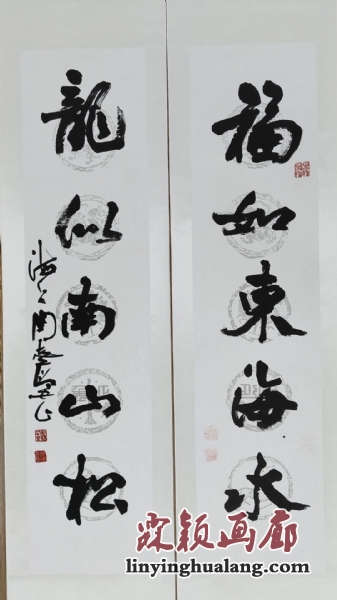 福如東海水
龍似南山松
霖颖画廊
linyinghualang.com